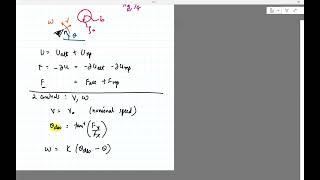 w
v
θ
U = Uatt + Urep
F = -∂U = -∂Uatt - ∂Urep
F = Fatt + Frep
2 controls : v, w
v = v₀ (nominal speed)
θdes = tan⁻¹ (Fy/Fx)
w = K (θdes - θ)